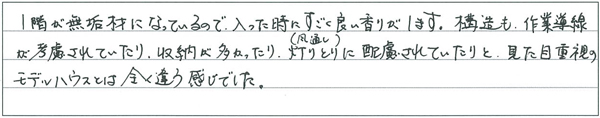 1階が無垢材になっているので、入った時にすごく良い香りがします。構造も、作業導線
が考慮されていたり、収納が多かったり、灯りとり(風通し)に配慮されていたりと、見た目重視の
モデルハウスとは全く違う感じでした。